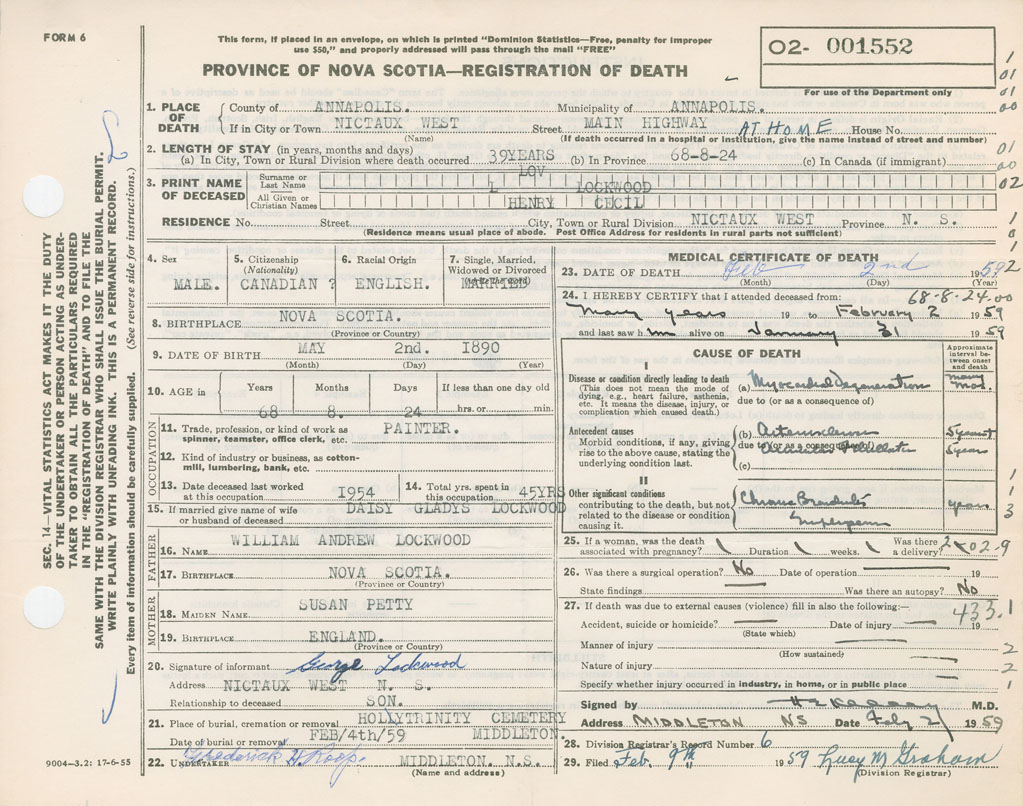 FORM 6
This form, if placed in an envelope, on which is printed "Dominion Statistics—Free, penalty for improper
use $50," and properly addressed will pass through the mail "FREE"
O2- 001552
For use of the Department only
PROVINCE OF NOVA SCOTIA—REGISTRATION OF DEATH
1. PLACE OF DEATH
County of ANNAPOLIS. Municipality of ANNAPOLIS.
If in City or Town NICTAUX WEST Street MAIN HIGHWAY AT HOME House No.
(Name) (If death occurred in a hospital or institution, give the name instead of street and number)
2. LENGTH OF STAY (in years, months and days)
(a) In City, Town or Rural Division where death occurred 39YEARS (b) In Province 68-8-24 (c) In Canada (if immigrant)
3. PRINT NAME OF DECEASED
LOV
Surname or Last Name L LOCKWOOD
All Given or Christian Names HENRY CECIL
RESIDENCE No. Street City, Town or Rural Division NICTAUX WEST Province N. S.
(Residence means usual place of abode. Post Office Address for residents in rural parts not sufficient)
4. Sex MALE.
5. Citizenship (Nationality) CANADIAN ?
6. Racial Origin ENGLISH.
7. Single, Married, Widowed or Divorced (write the word) MARRIED
8. BIRTHPLACE NOVA SCOTIA.
(Province or Country)
9. DATE OF BIRTH MAY 2nd. 1890
(Month) (Day) (Year)
10. AGE in Years Months Days If less than one day old
68 8. 24 hrs. or min.
OCCUPATION
11. Trade, profession, or kind of work as spinner, teamster, office clerk, etc. PAINTER.
12. Kind of industry or business, as cotton-mill, lumbering, bank, etc.
13. Date deceased last worked at this occupation 1954
14. Total yrs. spent in this occupation 45YRS
15. If married give name of wife or husband of deceased DAISY GLADYS LOCKWOOD
FATHER
16. NAME WILLIAM ANDREW LOCKWOOD
17. BIRTHPLACE NOVA SCOTIA.
(Province or Country)
MOTHER
18. MAIDEN NAME SUSAN PETTY
19. BIRTHPLACE ENGLAND.
(Province or Country)
20. Signature of informant George Lockwood
Address NICTAUX WEST N. S.
Relationship to deceased SON.
21. Place of burial, cremation or removal HOLLYTRINITY CEMETERY
Date of burial or removal FEB/4th/59 MIDDLETON.
22. UNDERTAKER Frederick H. Roop MIDDLETON. N.S.
(Name and address)
MEDICAL CERTIFICATE OF DEATH
23. DATE OF DEATH Feb 2nd 1959
(Month) (Day) (Year)
24. I HEREBY CERTIFY that I attended deceased from: 68-8-24.00
many years 19 to February 2 1959
and last saw him alive on January 31 1959
CAUSE OF DEATH
Approximate interval between onset and death
I
Disease or condition directly leading to death
(This does not mean the mode of dying, e.g., heart failure, asthenia, etc. It means the disease, injury, or complication which caused death.)
(a) Myocardial Degeneration many mos.
due to (or as a consequence of)
Antecedent causes
Morbid conditions, if any, giving rise to the above cause, stating the underlying condition last.
(b) 5 years
due to (or as a consequence of) 5 years
(c)
II
Other significant conditions
contributing to the death, but not related to the disease or condition causing it.
Chronic Bronchitis years
25. If a woman, was the death associated with pregnancy? Duration weeks. Was there a delivery?
26. Was there a surgical operation? No Date of operation 19
State findings Was there an autopsy? No
27. If death was due to external causes (violence) fill in also the following:—
433.1
Accident, suicide or homicide? Date of injury 19
(State which)
Manner of injury
(How sustained)
Nature of injury
Specify whether injury occurred in industry, in home, or in public place
Signed by M.D.
Address MIDDLETON NS Date Feby 2 1959
28. Division Registrar's Record Number 6
29. Filed Feb. 9th 1959 Lucy M Graham
(Division Registrar)
SEC. 14—VITAL STATISTICS ACT MAKES IT THE DUTY
OF THE UNDERTAKER OR PERSON ACTING AS UNDER-
TAKER TO OBTAIN ALL THE PARTICULARS REQUIRED
IN THE "REGISTRATION OF DEATH" AND TO FILE THE
SAME WITH THE DIVISION REGISTRAR WHO SHALL ISSUE THE BURIAL PERMIT.
WRITE PLAINLY WITH UNFADING INK. THIS IS A PERMANENT RECORD.
Every item of information should be carefully supplied. (See reverse side for instructions.)
9004—3.2: 17-6-55